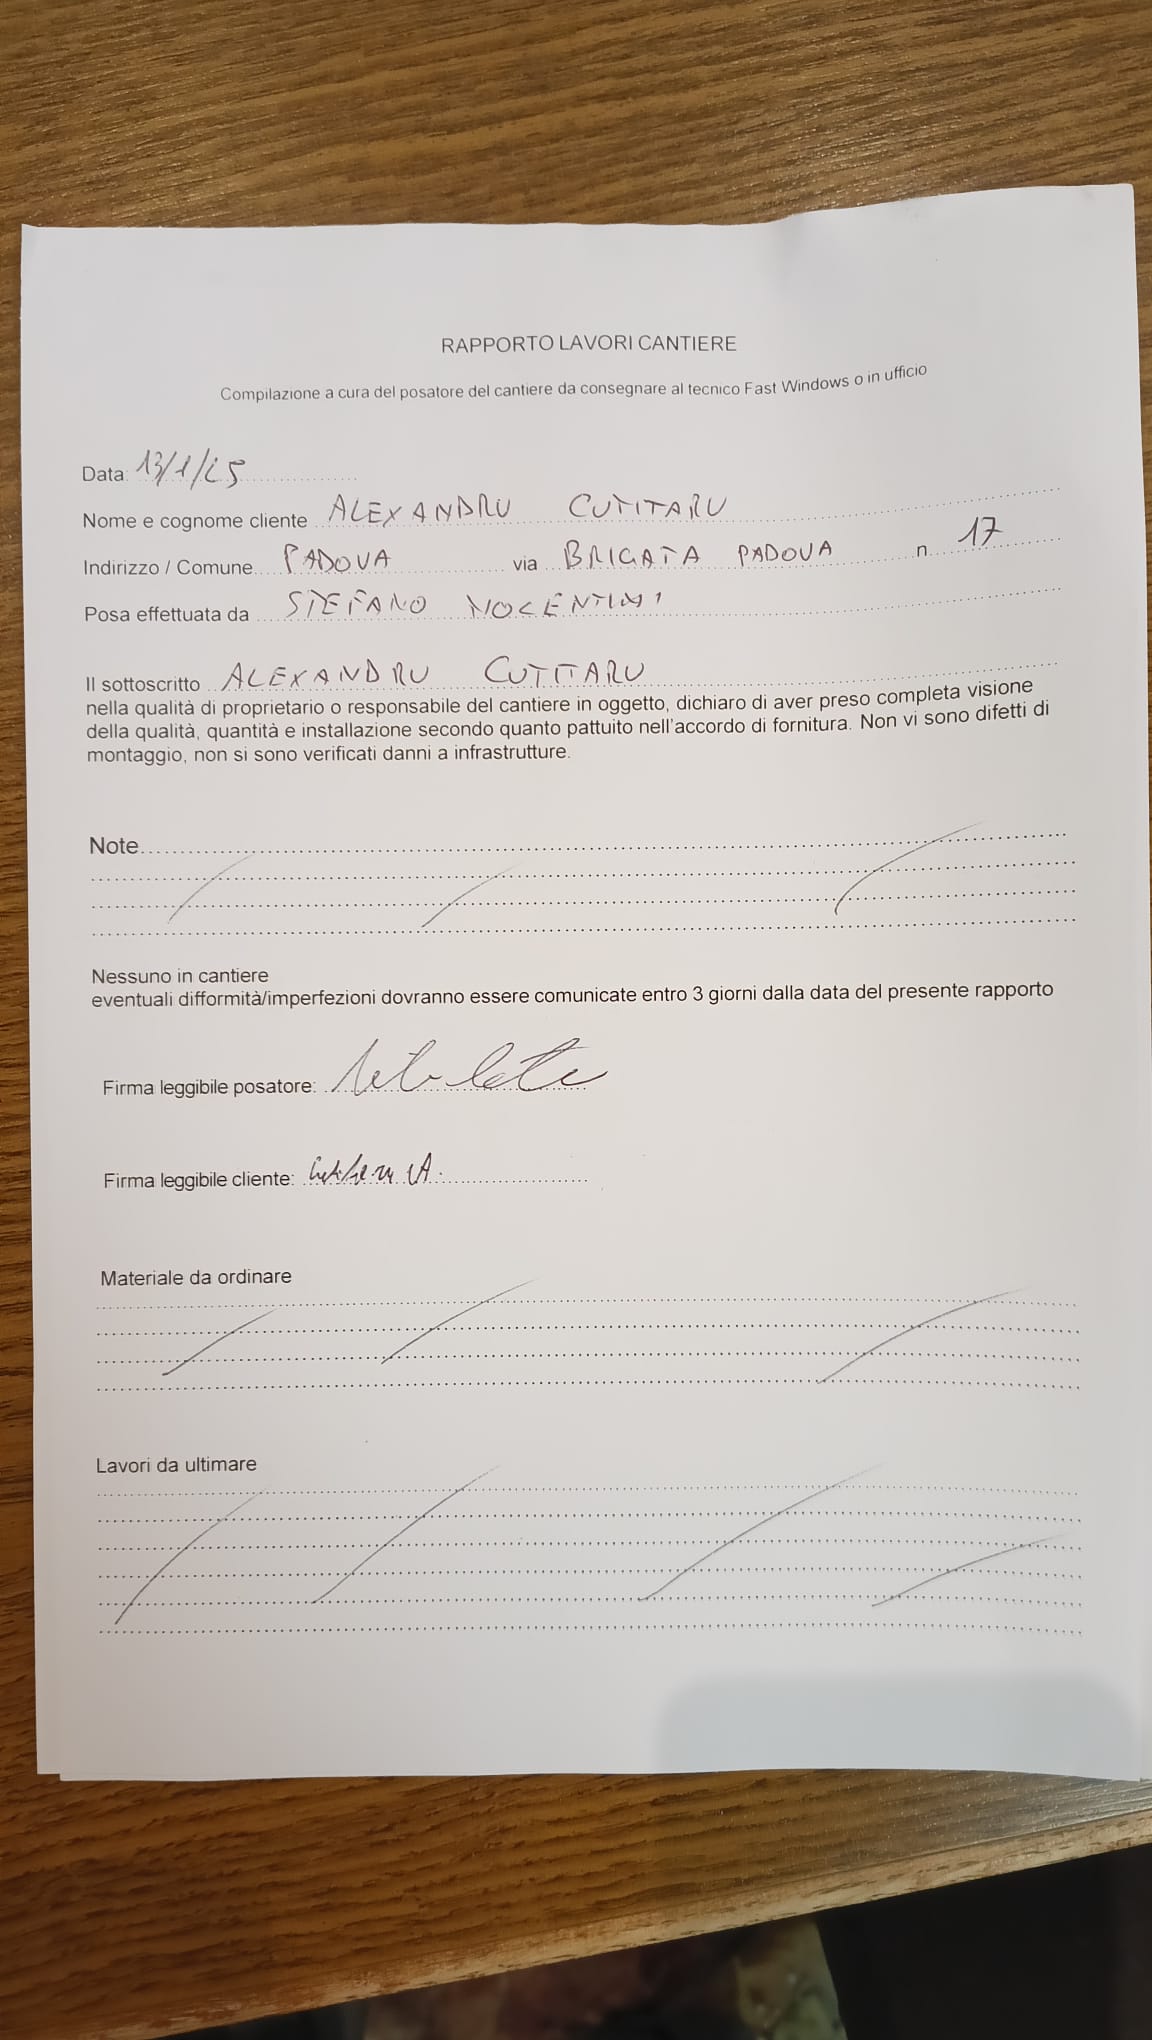 RAPPORTO LAVORI CANTIERE
Compilazione a cura del posatore del cantiere da consegnare al tecnico Fast Windows o in ufficio
Data: 13/1/25
Nome e cognome cliente ALEXANDRU CUTITARU
Indirizzo / Comune PADOVA via BRIGATA PADOVA n 17
Posa effettuata da STEFANO NOCENTINI
Il sottoscritto ALEXANDRU CUTITARU
nella qualità di proprietario o responsabile del cantiere in oggetto, dichiaro di aver preso completa visione
della qualità, quantità e installazione secondo quanto pattuito nell'accordo di fornitura. Non vi sono difetti di
montaggio, non si sono verificati danni a infrastrutture.
Note
Nessuno in cantiere
eventuali difformità/imperfezioni dovranno essere comunicate entro 3 giorni dalla data del presente rapporto
Firma leggibile posatore:
Firma leggibile cliente:
Materiale da ordinare
Lavori da ultimare